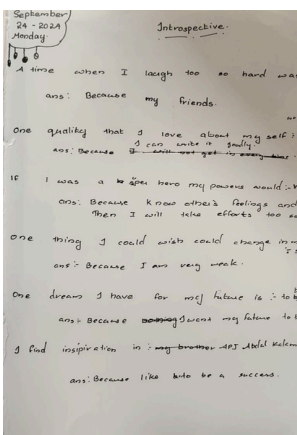 September
24 - 2024
Monday.
Introspective.
A time when I laugh too so hard was
ans: Because my friends.
One quality that I love about my self
I can write it goodly.
ans: Because I will not get in every time.
If I was a super hero my powers would :-
ans: Because know other's feelings and
Then I will take efforts too
one thing I could wish could change in
ans:- Because I am very weak.
One dream I have for my future is :- to b
ans: Because I want my future to
I find insipiration in :- my brother APJ Abdul Kalam
ans: Because like to be a success.